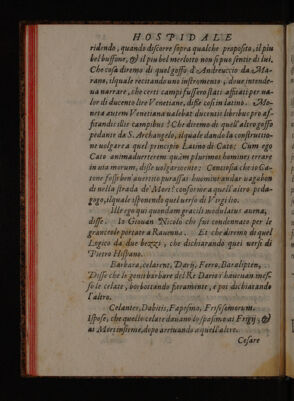 HOSPIDALE
ridendo, quando discorre sopra qualche proposito, il piu
bel buffone, & il piu bel merlotto non si puo sentir di lui.
Che cosa diremo di quel goffo d'Andreuccio da Ma-
rano, il quale recitando uno instromento, dove intende-
va narrare, che certi campi fussero stati affittati per va-
lor di ducento lire Venetiane, disse così in latino. Mo-
neta autem Venetiana valebat ducentis libribus pro af-
fitandis illis campibus? Che diremo di quell'altro goffo
pedante da S. Archangelo, il quale dando la construttio-
ne volgare a quel principio Latino di Cato: Cum ego
Cato animadverterem quàm plurimos homines errare
in via morum, disse volgarmente: Conciosia che io Ca-
tone fossi ben avertito parassai huomini andar vagabon
di nella strada de' Mori? conforme a quell'altro peda-
gogo, il quale isponendo quel verso di Virgilio.
Ille ego qui quondam gracili modulatus avena,
disse. Io Giovan Nicolò che fui condennato per le
granceole portate a Ravenna. Et che diremo di quel
Legico da due bezzi, che dichiarando quei versi di
Pietro Hispano.
Barbara, celarent, Darij, Ferio, Baralipton,
Disse che le genti barbare del Re Dario havevan mes-
so le celate, borbottando fieramente, e poi dichiarando
l'altro.
Celantes, Dabitis, Fapesmo, Frisesomorum.
Ispose, che quelle celate davano lo spasimo ai Frigij, &
ai Mori insieme, dopo arrivando a quell'altre.
Cesare